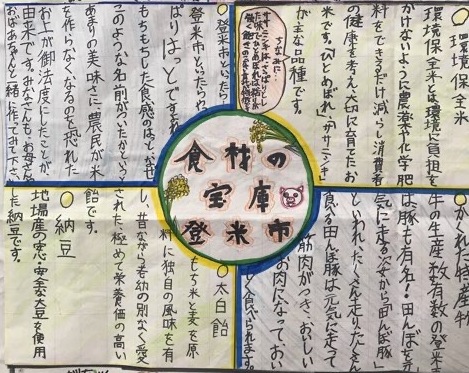 食材の
宝庫
登米市
○環境保全米
環境保全米とは、環境に負担を
かけないように農薬や化学肥
料をできるだけ減らし、消費者
の健康を考え、大切に育てたお
米です。「ひとめぼれ」、「ササニシキ」
が主な品種です。
ちなみに…
○登米市といったら
登米市といったらや
ぱりはっとですよね
もちもちした食感のはっと、なぜ
このような名前がついたかという
あまりの美味さに、農民が米
を作らなくなるのを恐れた
お上が御法度にしたことが
由来です。みなさんも、お母さん、
おばあちゃんと一緒に作ってみて下さい。
○かくれた特産物
牛の生産数有数の登米市
は豚も有名!田んぼを元
気に走る姿から「田んぼ豚」
といわれ、たくさん走り、たくさん
食べる田んぼ豚は元気に走って
筋肉がつき、おいしい
お肉になっておい
しく食べられます。
○太白飴
もち米と麦を原
料に独自の風味を有
し、昔から老幼の別なく愛
された極めて栄養価の高い
飴です。
○納豆
地場産の安心・安全な大豆を使用
した納豆です。